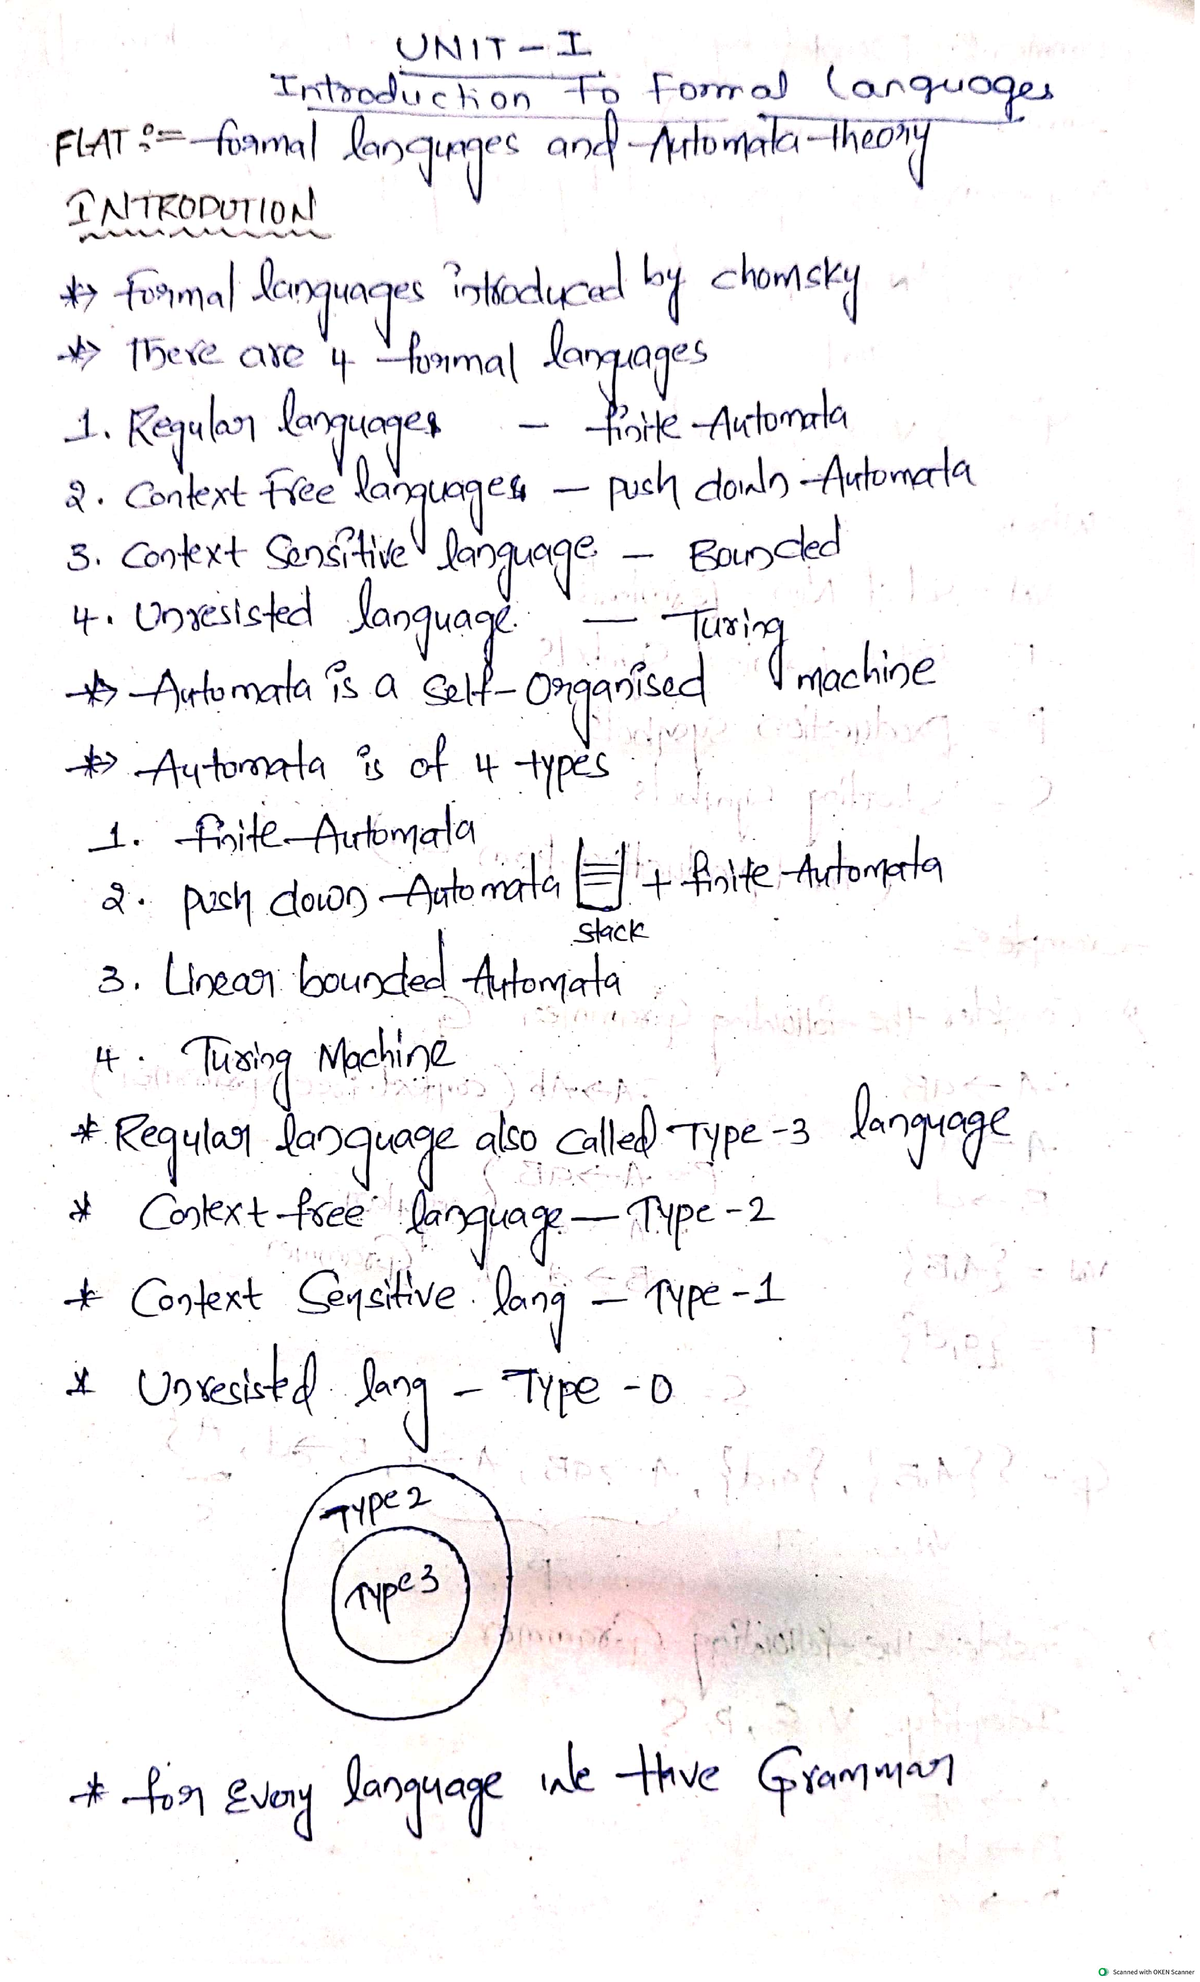 UNIT - I
Introduction To Formal Languages
FLAT :- formal languages and Automata theory
INTRODUTION
*> Formal languages introduced by chomsky
*> There are 4 formal languages
1. Regular languages - finite Automata
2. Context Free languages - push down Automata
3. Context Sensitive language - Bounded
4. Unresisted language. - Turing machine
*> Automata is a Self-Organised
*> Automata is of 4 types
1. finite Automata
2. push down Automata + finite Automata
stack
3. Linear bounded Automata
4. Turing Machine
* Regular language also called Type-3 language
* Context free language - Type-2
* Context Sensitive lang - Type-1
* Unresisted lang - Type-0
Type 2
Type 3
* for Every language we have Grammar
Scanned with OKEN Scanner